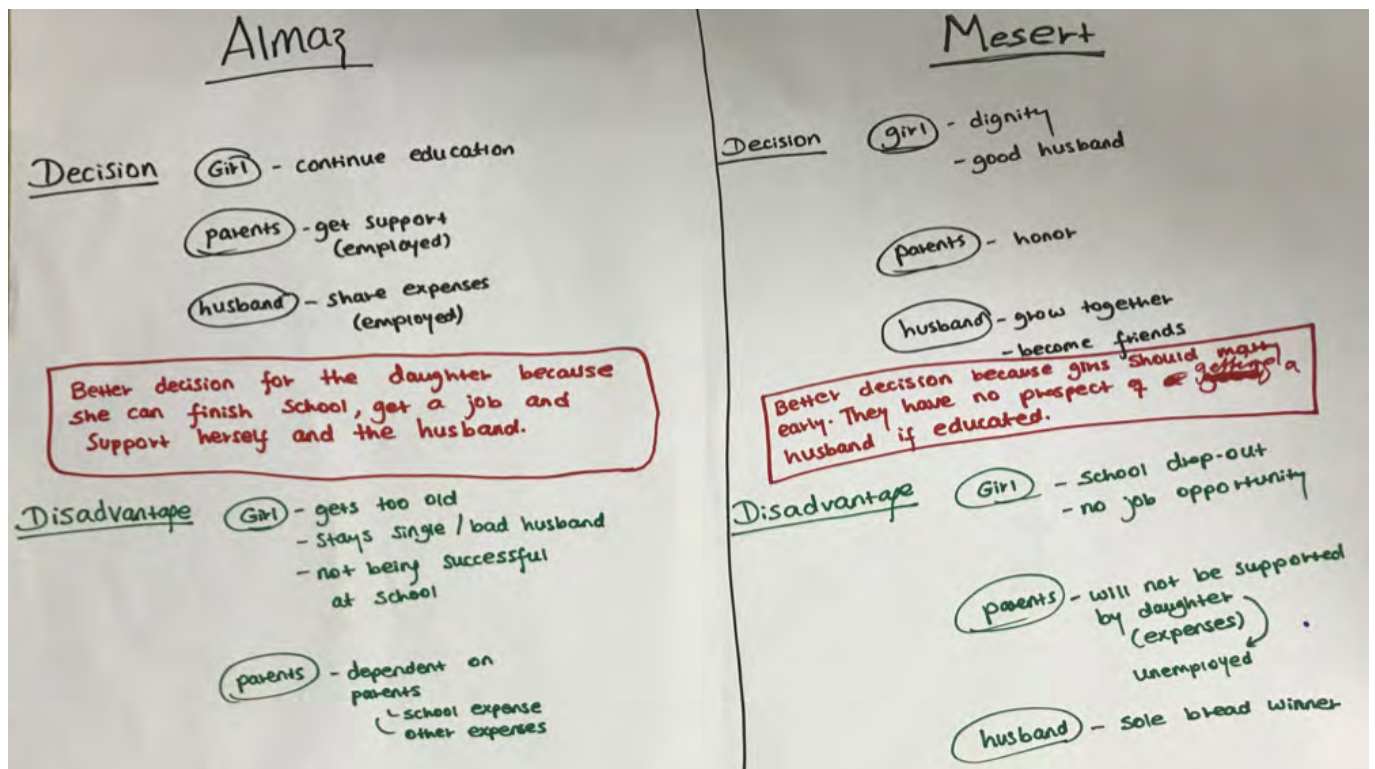 Almaz
Decision Girl - continue education
parents - get support
(employed)
husband - share expenses
(employed)
Better decision for the daughter because
she can finish school, get a job and
support herself and the husband.
Disadvantage Girl - gets too old
- stays single / bad husband
- not being successful
at school
parents - dependent on
parents
school expense
other expenses
Mesert
Decision girl - dignity
- good husband
parents - honor
husband - grow together
- become friends
Better decision because girls should marry
early. They have no prospect of getting a
husband if educated.
Disadvantage Girl - school drop-out
- no job opportunity
parents - will not be supported
by daughter
(expenses)
unemployed
husband - sole bread winner